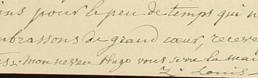 ns pour le peu de temps qui n
mbrassons de grand cœur, receve
mon neveu Hugo vous serre la mai
Louis